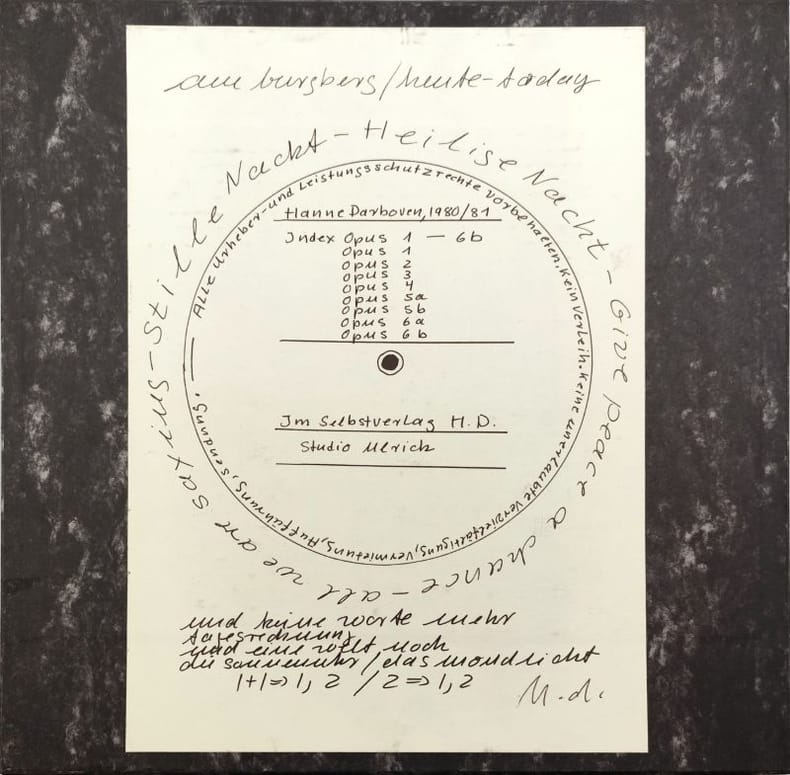 am burgberg/heute-today
Stille Nacht-Heilige Nacht-Give peace a chance-all we are saying-
Alle Urheber-und Leistungsschutzrechte vorbehalten. Kein Verleih. Keine unerlaubte Vervielfältigung, Vermietung, Aufführung, Sendung.
Hanne Darboven, 1980/81
Index Opus 1 — 6b
Opus 1
Opus 2
Opus 3
Opus 4
Opus 5a
Opus 5b
Opus 6a
Opus 6b
Im Selbstverlag H.D.
Studio Ulrich
und keine worte mehr
tagesrechnung
und eine welt noch
die sonnenuhr/das mondlicht
1+1⇒1,2 /2⇒1,2
H.d.